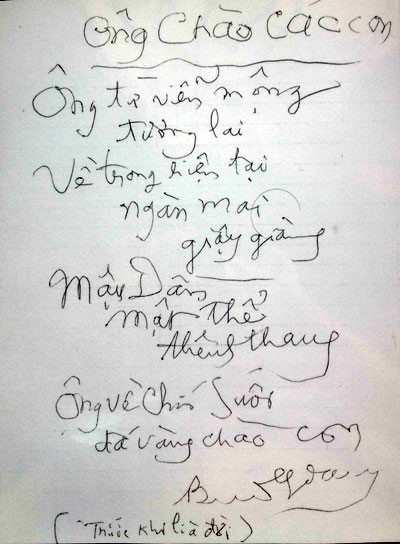 Ông Chào Các con
Ông từ viễn mộng
tương lai
Về trong hiện tại
ngàn mai
giậy giàng
Mậu Dần
một thể
thênh thang
Ông về Chín Suối
đá vàng chào con
(Trước khi lìa đời)